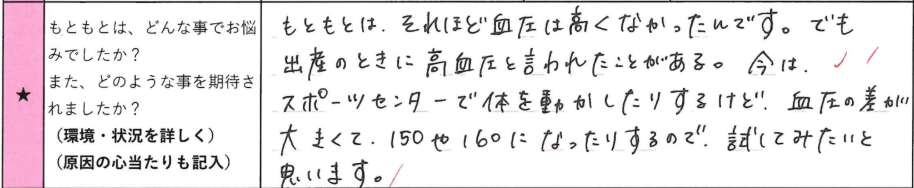 ★
もともとは、どんな事でお悩
みでしたか？
また、どのような事を期待さ
れましたか？
（環境・状況を詳しく）
（原因の心当たりも記入）
もともとは、それほど血圧は高くなかったんです。でも
出産のときに高血圧と言われたことがある。今は、
スポーツセンターで体を動かしたりするけど、血圧の差が
大きくて、150や160になったりするので、試してみたいと
思います。